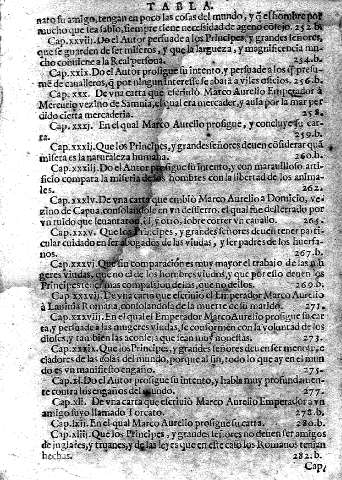 TABLA.
nato su amigo, tengan en poco las cosas del mundo, y q̃ el hombre por
mucho que sea sabio, siempre tiene necessidad de ageno cõsejo. 252.b.
Cap. xxviij. Do el Autor persuade a los Principes, y grandes señores,
que se guarden de ser miseros, y que la largueza, y magnificencia mu-
cho conuiene a la Real persona. 254.b.
Cap. xxix. Do el Autor prosigue su intento, y persuade a los q̃ presu-
mẽ de caualleros, q̃ por ningun interesse se abatã a viles oficios. 256.b.
Cap. xxx. De vna carta que escriuio Marco Aurelio Emperador à
Mercurio vezino de Samnia, el qual era mercader, y auia por la mar per
dido cierta mercaderia. 258.
Cap. xxxj. En el qual Marco Aurelio prosigue, y concluye su car-
ta. 259.b.
Cap. xxxij. Que los Principes, y grandes señores deuen cõsiderar quã
misera es la naturaleza humana. 260.b.
Cap. xxxiij. Do el Autor prosigue su intento, y con marauilloso arti-
ficio compara la miseria de los hombres con la libertad de los anima-
les. 262.
Cap. xxxiv. De vna carta que embió Marco Aurelio a Domicio, ve-
zino de Capua, consolandole en vn destierro, el qual fue desterrado por
vn ruido que leuantaron, el, y otro, sobre correr vn cauallo. 265.
Cap. xxxv. Que los Principes, y grandes señores deuen tener parti-
cular cuidado en ser abogados de las viudas, y ser padres de los huerfa-
nos. 267.b.
Cap. xxxvi. Que sin comparacion es muy mayor el trabajo de las mu
geres viudas, que no el de los hombres viudos, y que por esso deuen los
Principes tener mas compassion de ellas, que no dellos. 269.b.
Cap. xxxvij. De vna carta que escriuio el Emperador Marco Aurelio
à Lauinia Romana, consolandola de la muerte de su marido. 271.
Cap. xxxviij. En el qual el Emperador Marco Aurelio prosigue su car
ta, y persuade a las mugeres viudas, se conformen con la voluntad de los
dioses, y tambien las aconseja que sean muy honestas. 273.
Cap. xxxix. Que los Principes, y grandes señores deuen ser menos-
ciadores de las cosas del mundo, porque al fin, todo lo que ay en el mun
do es vn manifiesto engaño. 275.
Cap. xl. Do el Autor prosigue su intento, y habla muy profundamen-
te contra los engaños del mundo. 277.
Cap. xli. De vna carta que escriuio Marco Aurelio Emperador a vn
amigo suyo llamado Torcato. 278.b.
Cap. xlij. En el qual Marco Aurelio prosigue su carta. 280.b.
Cap. xliij. Que los Principes, y grandes señores no deuen ser amigos
de juglares, y truanes, y de las leyes que en este caso los Romanos tenian
hechas. 282.b.
Cap.